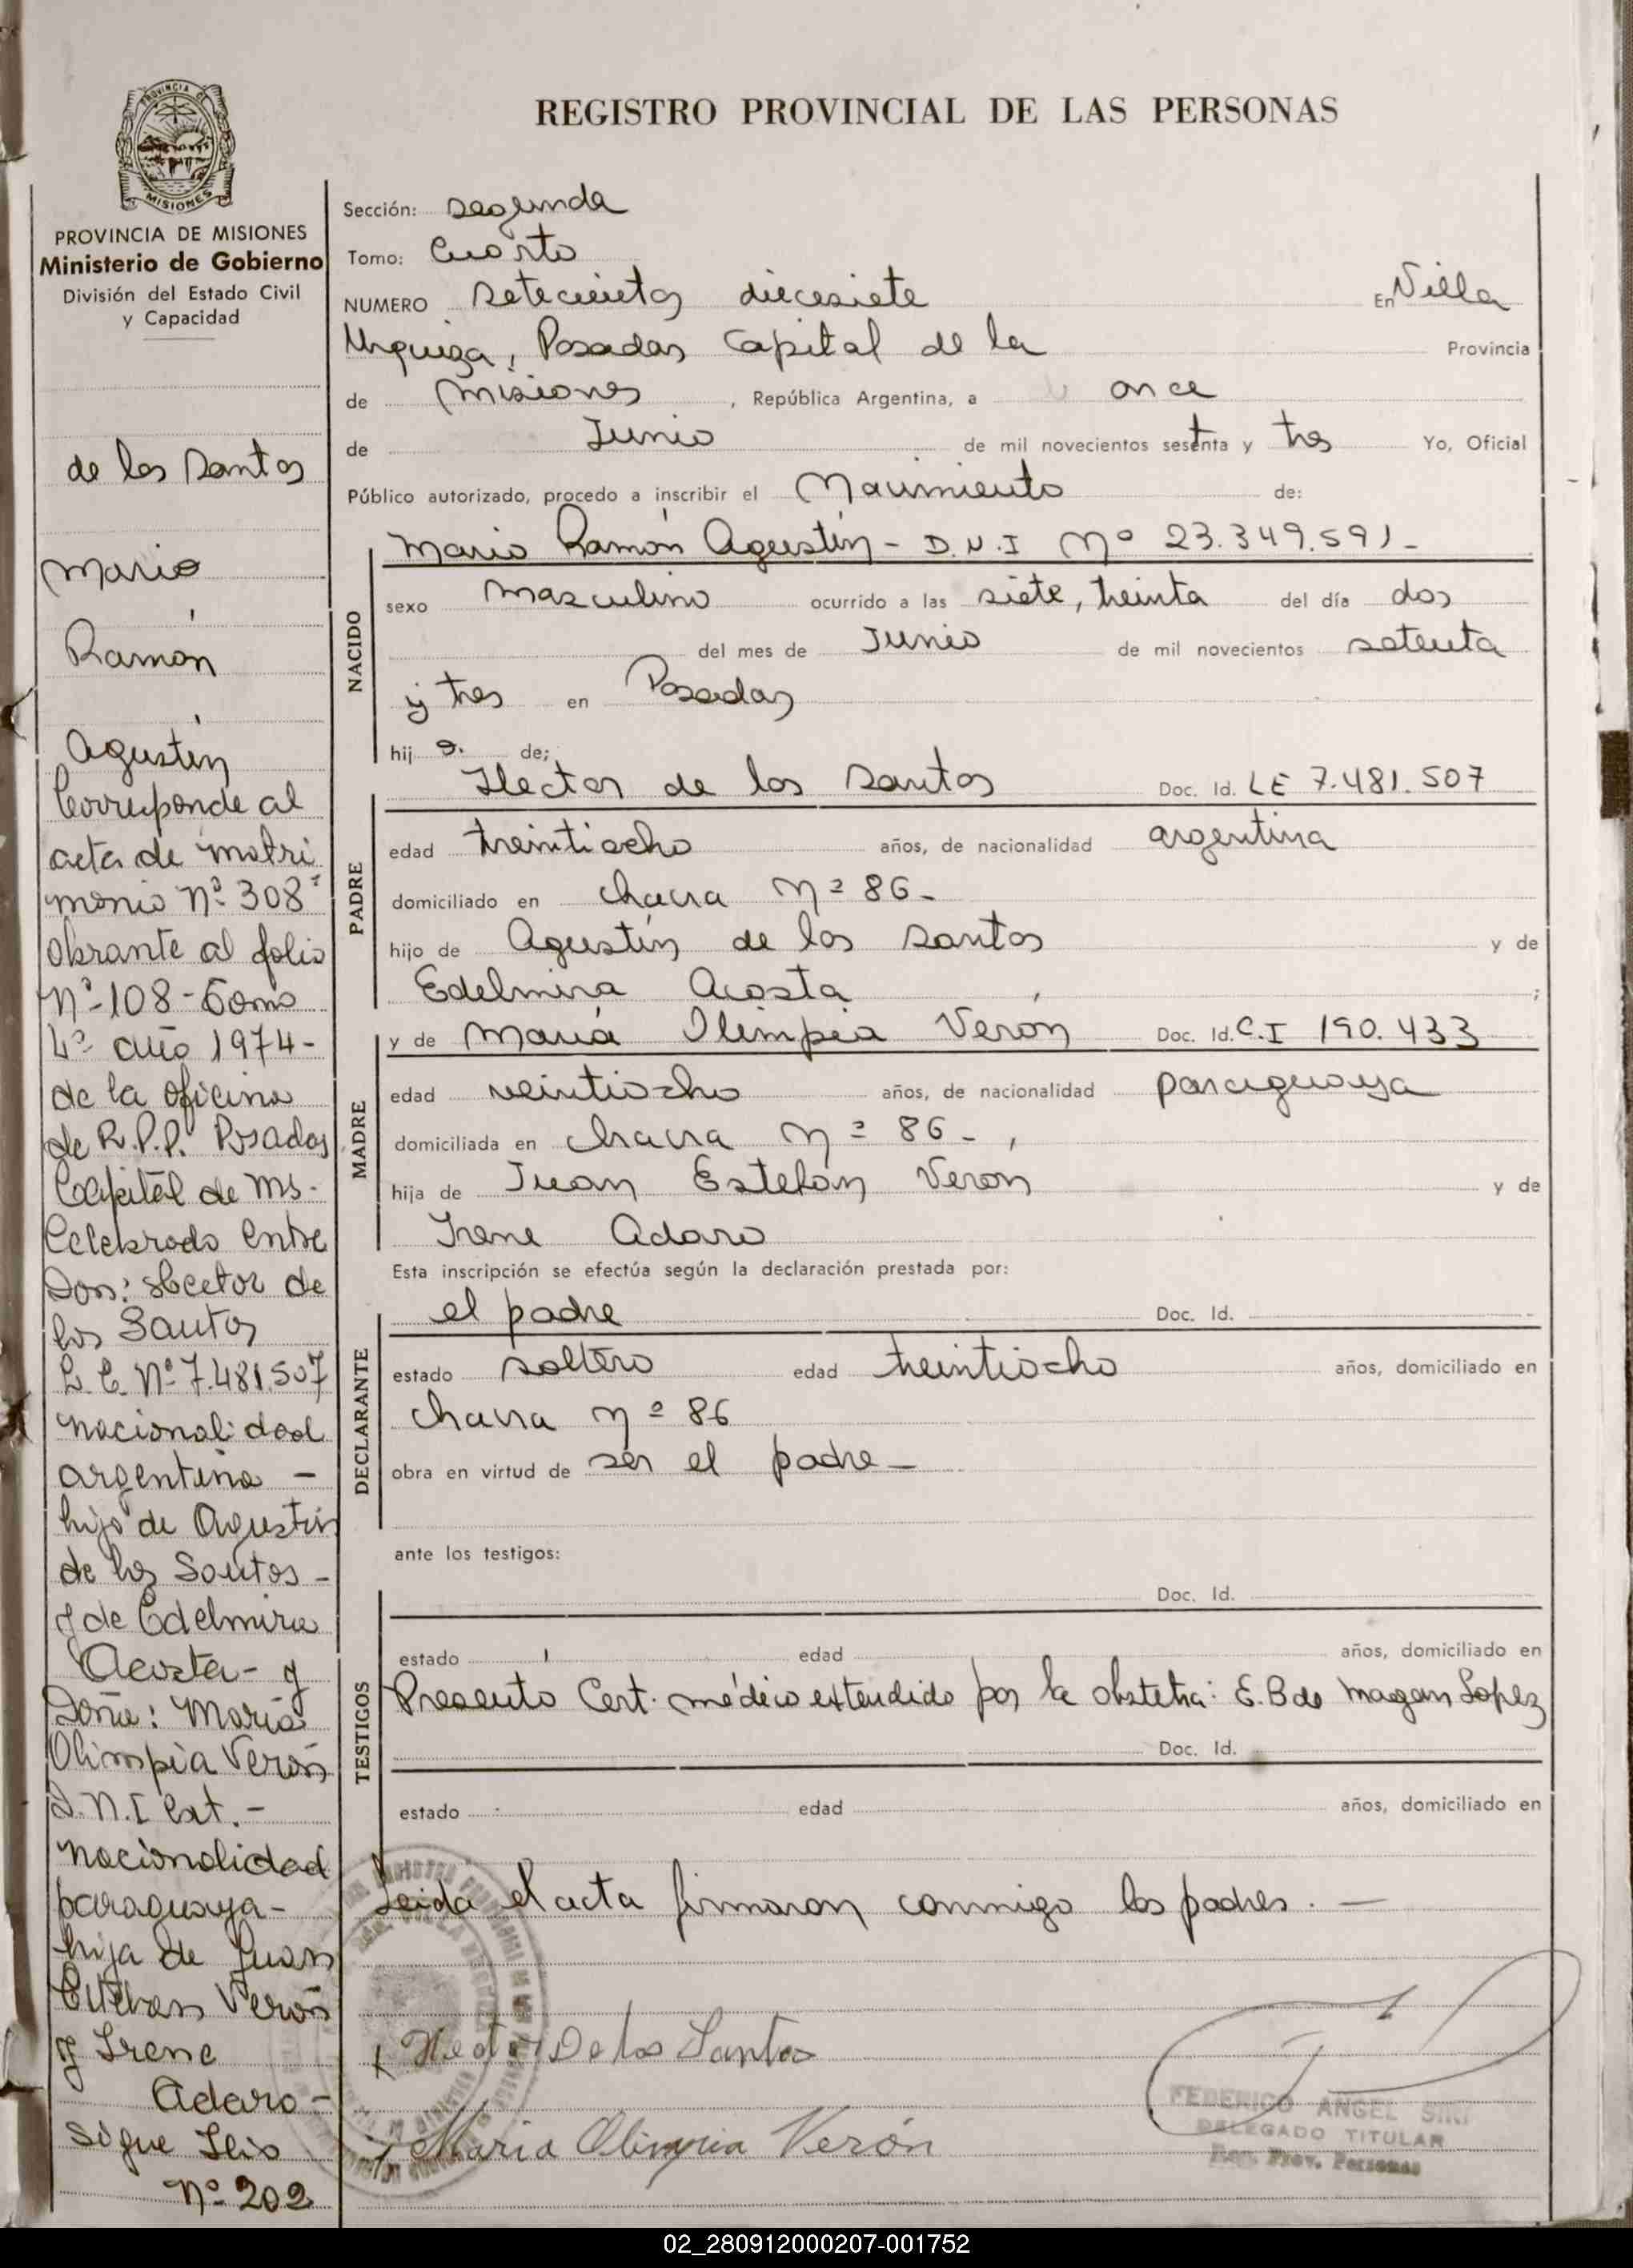 REGISTRO PROVINCIAL DE LAS PERSONAS
PROVINCIA DE
MISIONES
PROVINCIA DE MISIONES
Ministerio de Gobierno
División del Estado Civil
y Capacidad
de los Santos
Mario
Ramón
Agustín
Corresponde al
acta de matri
monio Nº 308
obrante al folio
Nº 108 - Tomo
4º año 1974 -
de la oficina
de R.P.P. Posadas
Capital de Ms.
Celebrado entre
Don: Hector de
los Santos
L.E. Nº 7.481.507
nacionalidad
argentina -
hijo de Agustín
de los Santos -
y de Edelmira
Acosta - y
Doña: María
Olimpia Verón
D.N.I Ext. -
nacionalidad
paraguaya -
hija de Juan
Esteban Verón
y Irene
Adaro -
Sigue flio
Nº 202
Sección: segunda
Tomo: Cuarto
NUMERO setecientos diecisiete En Villa
Urquiza, Posadas Capital de la Provincia
de Misiones, República Argentina, a once
de Junio de mil novecientos sesenta y tres Yo, Oficial
Público autorizado, procedo a inscribir el Nacimiento de:
Mario Ramón Agustín - D.N.I Nº 23.349.591 -
NACIDO
sexo masculino ocurrido a las siete, treinta del día dos
del mes de Junio de mil novecientos setenta
y tres en Posadas
hij o. de;
Hector de los Santos Doc. Id. LE 7.481.507
PADRE
edad treintiocho años, de nacionalidad argentina
domiciliado en chacra nº 86 -
hijo de Agustín de los Santos y de
Edelmira Acosta ;
y de María Olimpia Veron Doc. Id. C.I 190.433
MADRE
edad veintiocho años, de nacionalidad paraguaya
domiciliada en chacra nº 86 -
hija de Juan Esteban Veron y de
Irene Adaro
Esta inscripción se efectúa según la declaración prestada por:
el padre Doc. Id.
DECLARANTE
estado soltero edad treintiocho años, domiciliado en
chacra nº 86
obra en virtud de ser el padre -
ante los testigos:
Doc. Id.
TESTIGOS
estado edad años, domiciliado en
Presentó Cert. médico extendido por la obstetra: E.B de Magan Lopez
Doc. Id.
estado edad años, domiciliado en
Leida el acta firmaron conmigo los padres. —
Hector De los Santos
Maria Olimpia Verón
FEDERICO ANGEL
DELEGADO TITULAR
Reg. Prov. Personas
02_280912000207-001752